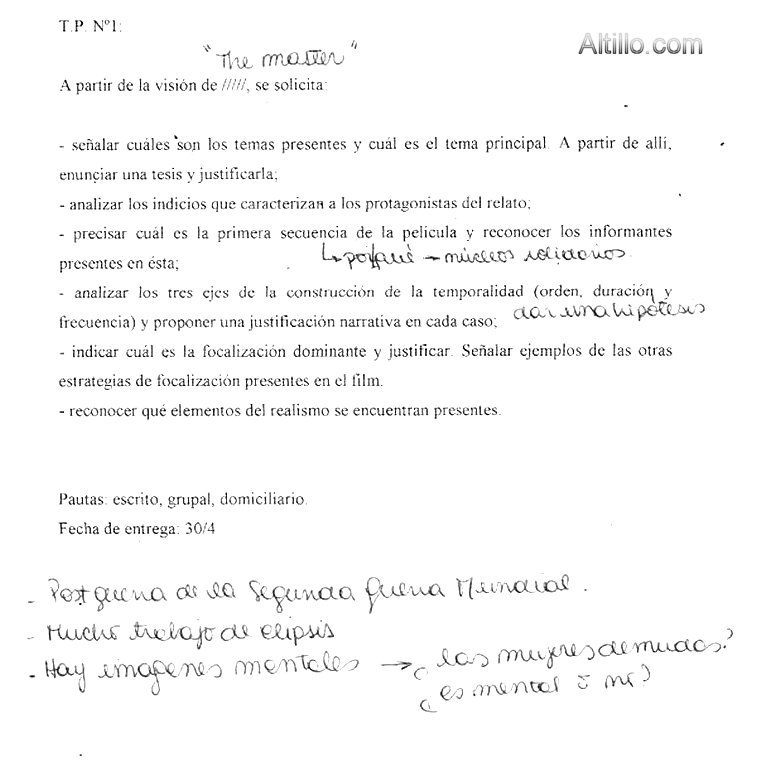 T.P. Nº1:
Altillo.com
"The master"
A partir de la visión de /////, se solicita:
- señalar cuáles son los temas presentes y cuál es el tema principal. A partir de allí,
enunciar una tesis y justificarla;
- analizar los indicios que caracterizan a los protagonistas del relato;
- precisar cuál es la primera secuencia de la película y reconocer los informantes
presentes en ésta;
↳ porqué → núcleos solidarios.
- analizar los tres ejes de la construcción de la temporalidad (orden, duración y
frecuencia) y proponer una justificación narrativa en cada caso; dar una hipótesis
- indicar cuál es la focalización dominante y justificar. Señalar ejemplos de las otras
estrategias de focalización presentes en el film.
- reconocer qué elementos del realismo se encuentran presentes.
Pautas: escrito, grupal, domiciliario.
Fecha de entrega: 30/4
- Post guerra de la Segunda Guerra Mundial.
- Mucho trabajo de elipsis
- Hay imagenes mentales → ¿las mujeres desnudas?
¿es mental o no?